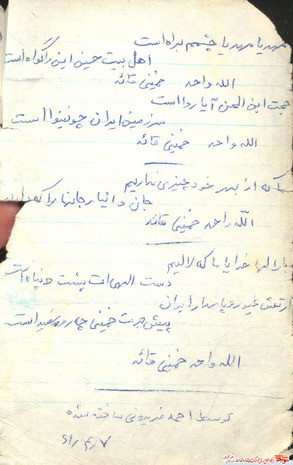 مهدیا مهدیا چشم براه است
اهل بیت حسین این را گواه است
الله واحد خمینی قائد
حجت ابن الحسن آیا رواست
سرزمین ایران چو نینوا است
الله واحد خمینی قائد
ما که از بهر خود چیزی نداریم
جان و
الله واحد خمینی قائد
بارالها خدایا ما که لالیم
دست اللهی ات پشت و پناه
ارتش غیور و پاسدار ایران
پیش حزب خمینی
الله واحد خمینی قائد
توسط احمد فریدونی ساخته شده
۶۱/۴/۷